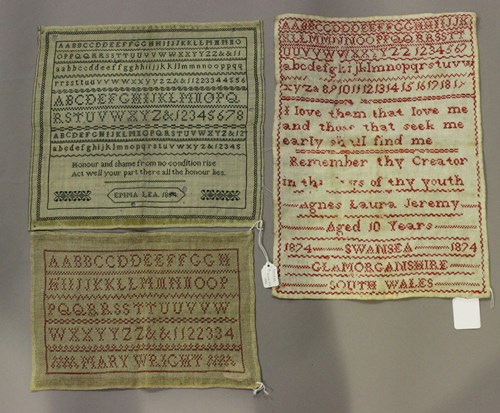 AABBCCDDEEFFGGHHIIJJKKLLMMNNO
OPPQQRRSSTTUUVVWWXXYYZZ&&11
aabbccddeeffgghhiijjkkllmmnnooppqq
rrssttuuvvwwxxyyzz&&11223344556
ABCDEFGHIJKLMNOPQ
RSTUVWXYZ&12345678
ABCDEFGHIJKLMNOPQRSTUVWXYZ&12
abcdefghijklmnopqrstuvwxyz&12345
Honour and shame from no condition rise
Act well your part there all the honour lies.
EMMA LEA
AABBCCDDEEFFGGH
HIIJJKKLLMMNNOOP
PQQRRSSTTUUVVW
WXXYYZZ&&1122334
MARY WRIGHT
AABBCCDDEEFFGGHHIIJJK
KLLMMNNOOPPQQRRSSTT
UUVVWWXXYYZZ1234567
abcdefghijklmnopqrstuvw
xyza 8 9 10 11 12 13 14 15 16 17 18
I love them that love me
and those that seek me
early shall find me
Remember thy Creator
in the days of thy youth
Agnes Laura Jeremy
Aged 10 Years
1874 SWANSEA 1874
GLAMORGANSHIRE
SOUTH WALES